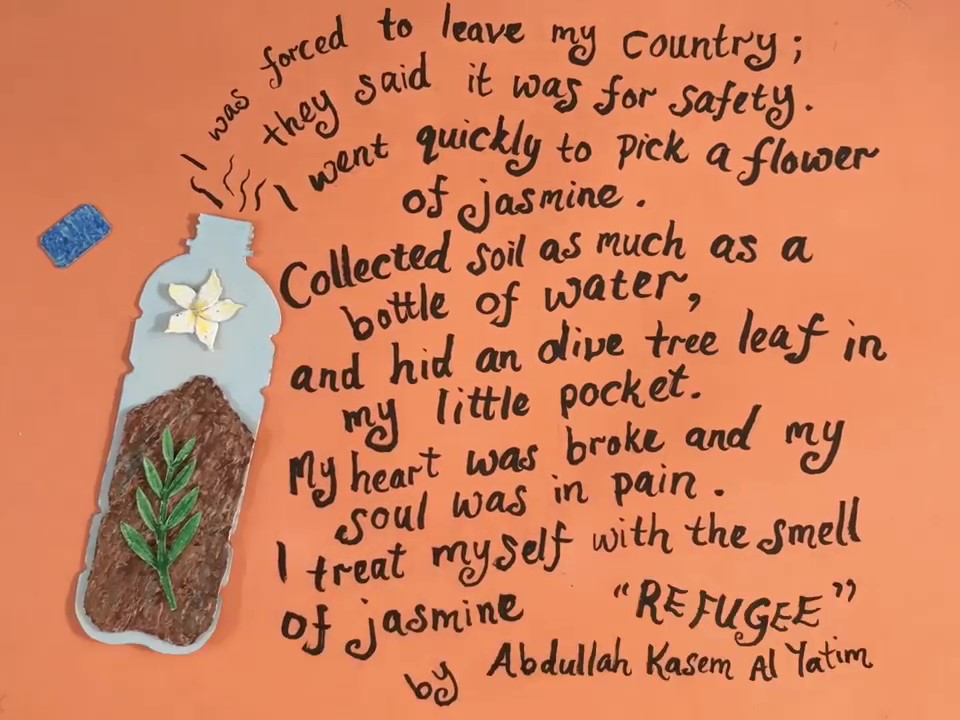 I was forced to leave my country;
they said it was for safety.
I went quickly to pick a flower
of jasmine.
Collected soil as much as a
bottle of water,
and hid an olive tree leaf in
my little pocket.
My heart was broke and my
soul was in pain.
I treat myself with the smell
of jasmine
"REFUGEE"
by Abdullah Kasem Al Yatim